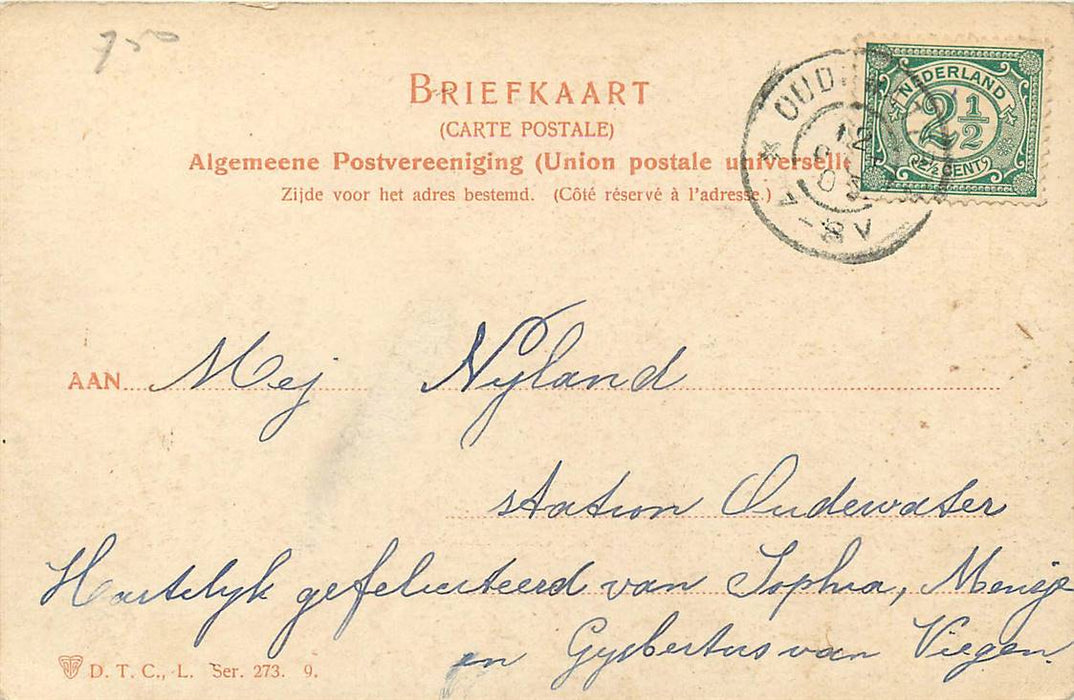 750
BRIEFKAART
(CARTE POSTALE)
Algemeene Postvereeniging (Union postale universelle
Zijde voor het adres bestemd. (Côté réservé à l'adresse.)
NEDERLAND
2½
2½ CENT
OUD
7-8V
AAN Mej Nyland
station Oudewater
Hartelyk gefeliciteerd van Sophia, Mensje
en Gysbertus van Viegen.
D. T. C., L. Ser. 273. 9.